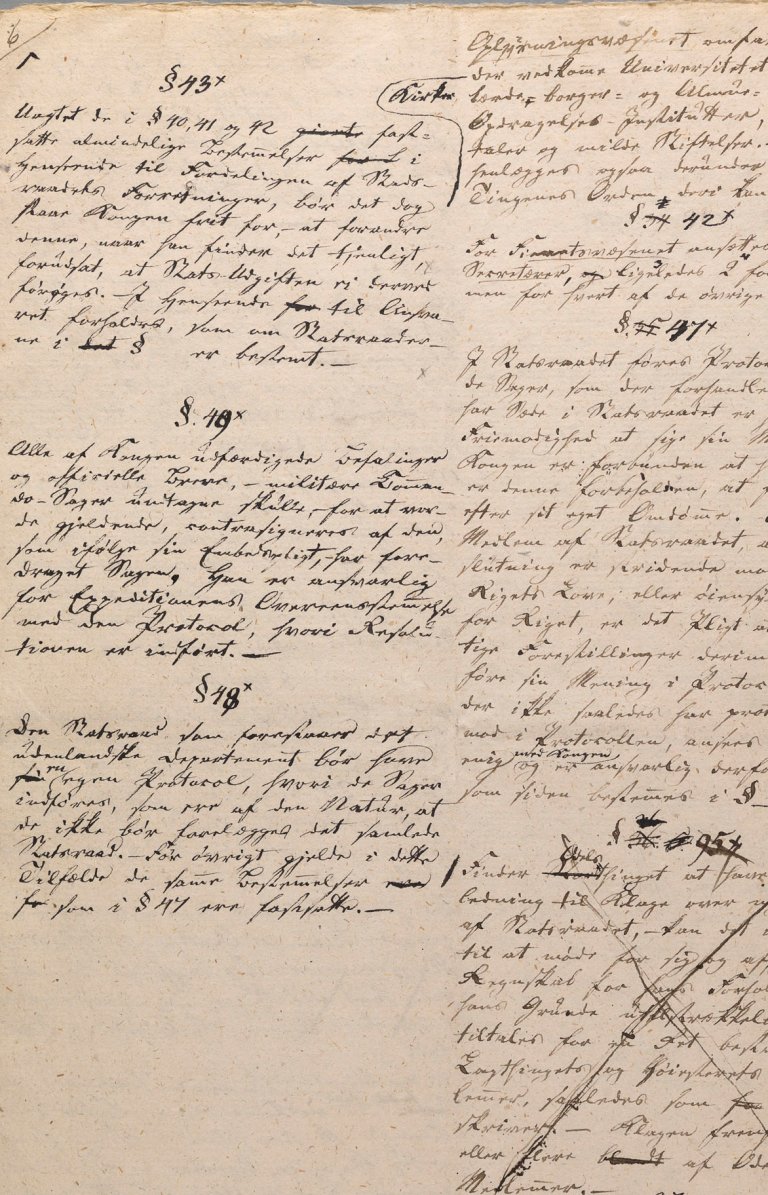 6
§ 43
Uagtet de i § 40, 41 og 42 giorte fast-
satte almindelige Bestemmelser for i
Henseende til Fordelingen af Stats-
raadets Forretninger, bør det dog
staae Kongen frit for, at forandre
denne, naar han finder det tjenligt,
forudsat, at Stats-Udgiften ei derved
forøges. – I Henseende for til Ansva-
ret forholdes, som om Statsraader-
ne i det § er bestemt. –
§. 49
Alle af Kongen udfærdigede Befalinger
og officielle Breve, – militaire Comman-
do-Sager undtagne skulle, for at vor-
de gjeldende, contrasigneres af den,
som ifølge sin Embedspligt, har fore-
draget Sagen. Han er ansvarlig
for Expeditionens Overeensstemmelse
med den Protocol, hvori Resolu-
tionen er indført. –
§ 48
Den Statsraad som forestaaer det
udenlandske Departement bør have
en egen Protocol, hvori de Sager
indføres, som ere af den Natur, at
de ikke bør forelægges det samlede
Statsraad. – For øvrigt gjelde i dette
Tilfælde de samme Bestemmelser
som i § 47 ere fastsatte. –
Kirke
Oplysningsvæsenet omfa
der vedkomme Universitetet
lærde- borger- og Almue-
Opdragelses-Institutter,
taler og milde Stiftelser.
henlægges ogsaa derunder
Tingenes Orden, deri kan
§ 42
For Finantsvæsenet ansættes
Secretærer, og ligeledes 2 fo
men for hvert af de øvrige
§. 47
I Statsraadet føres Protoc
de Sager, som der forhandle
har Sæde i Statsraadet er
Friemodighed at sige sin M
Kongen er forbunden at h
er denne forbeholden, at
efter sit eget Omdømme.
Medlem af Statsraadet a
slutning er stridende mo
Rigets Love, eller øiensy
for Riget, er det Pligt a
tige Forestillinger derim
føre sin Mening i Protoc
der ikke saaledes har pro
mod i Protocollen, ansees
enig med Kongen og er ansvarlig derfo
som siden bestemmes i §
§ 95
Finder Odelsthinget at have
ledning til Klage over
af Statsraadet, – kan det
til at møde for sig og af
Regnskab for hans Forhol
hans Grunde utilstrækkel
tiltales for en Ret best
Lagthingets og Høiesterets
lemmer, saaledes som
skriver. – Klagen frem
eller flere af Ode
Medlemmer. –